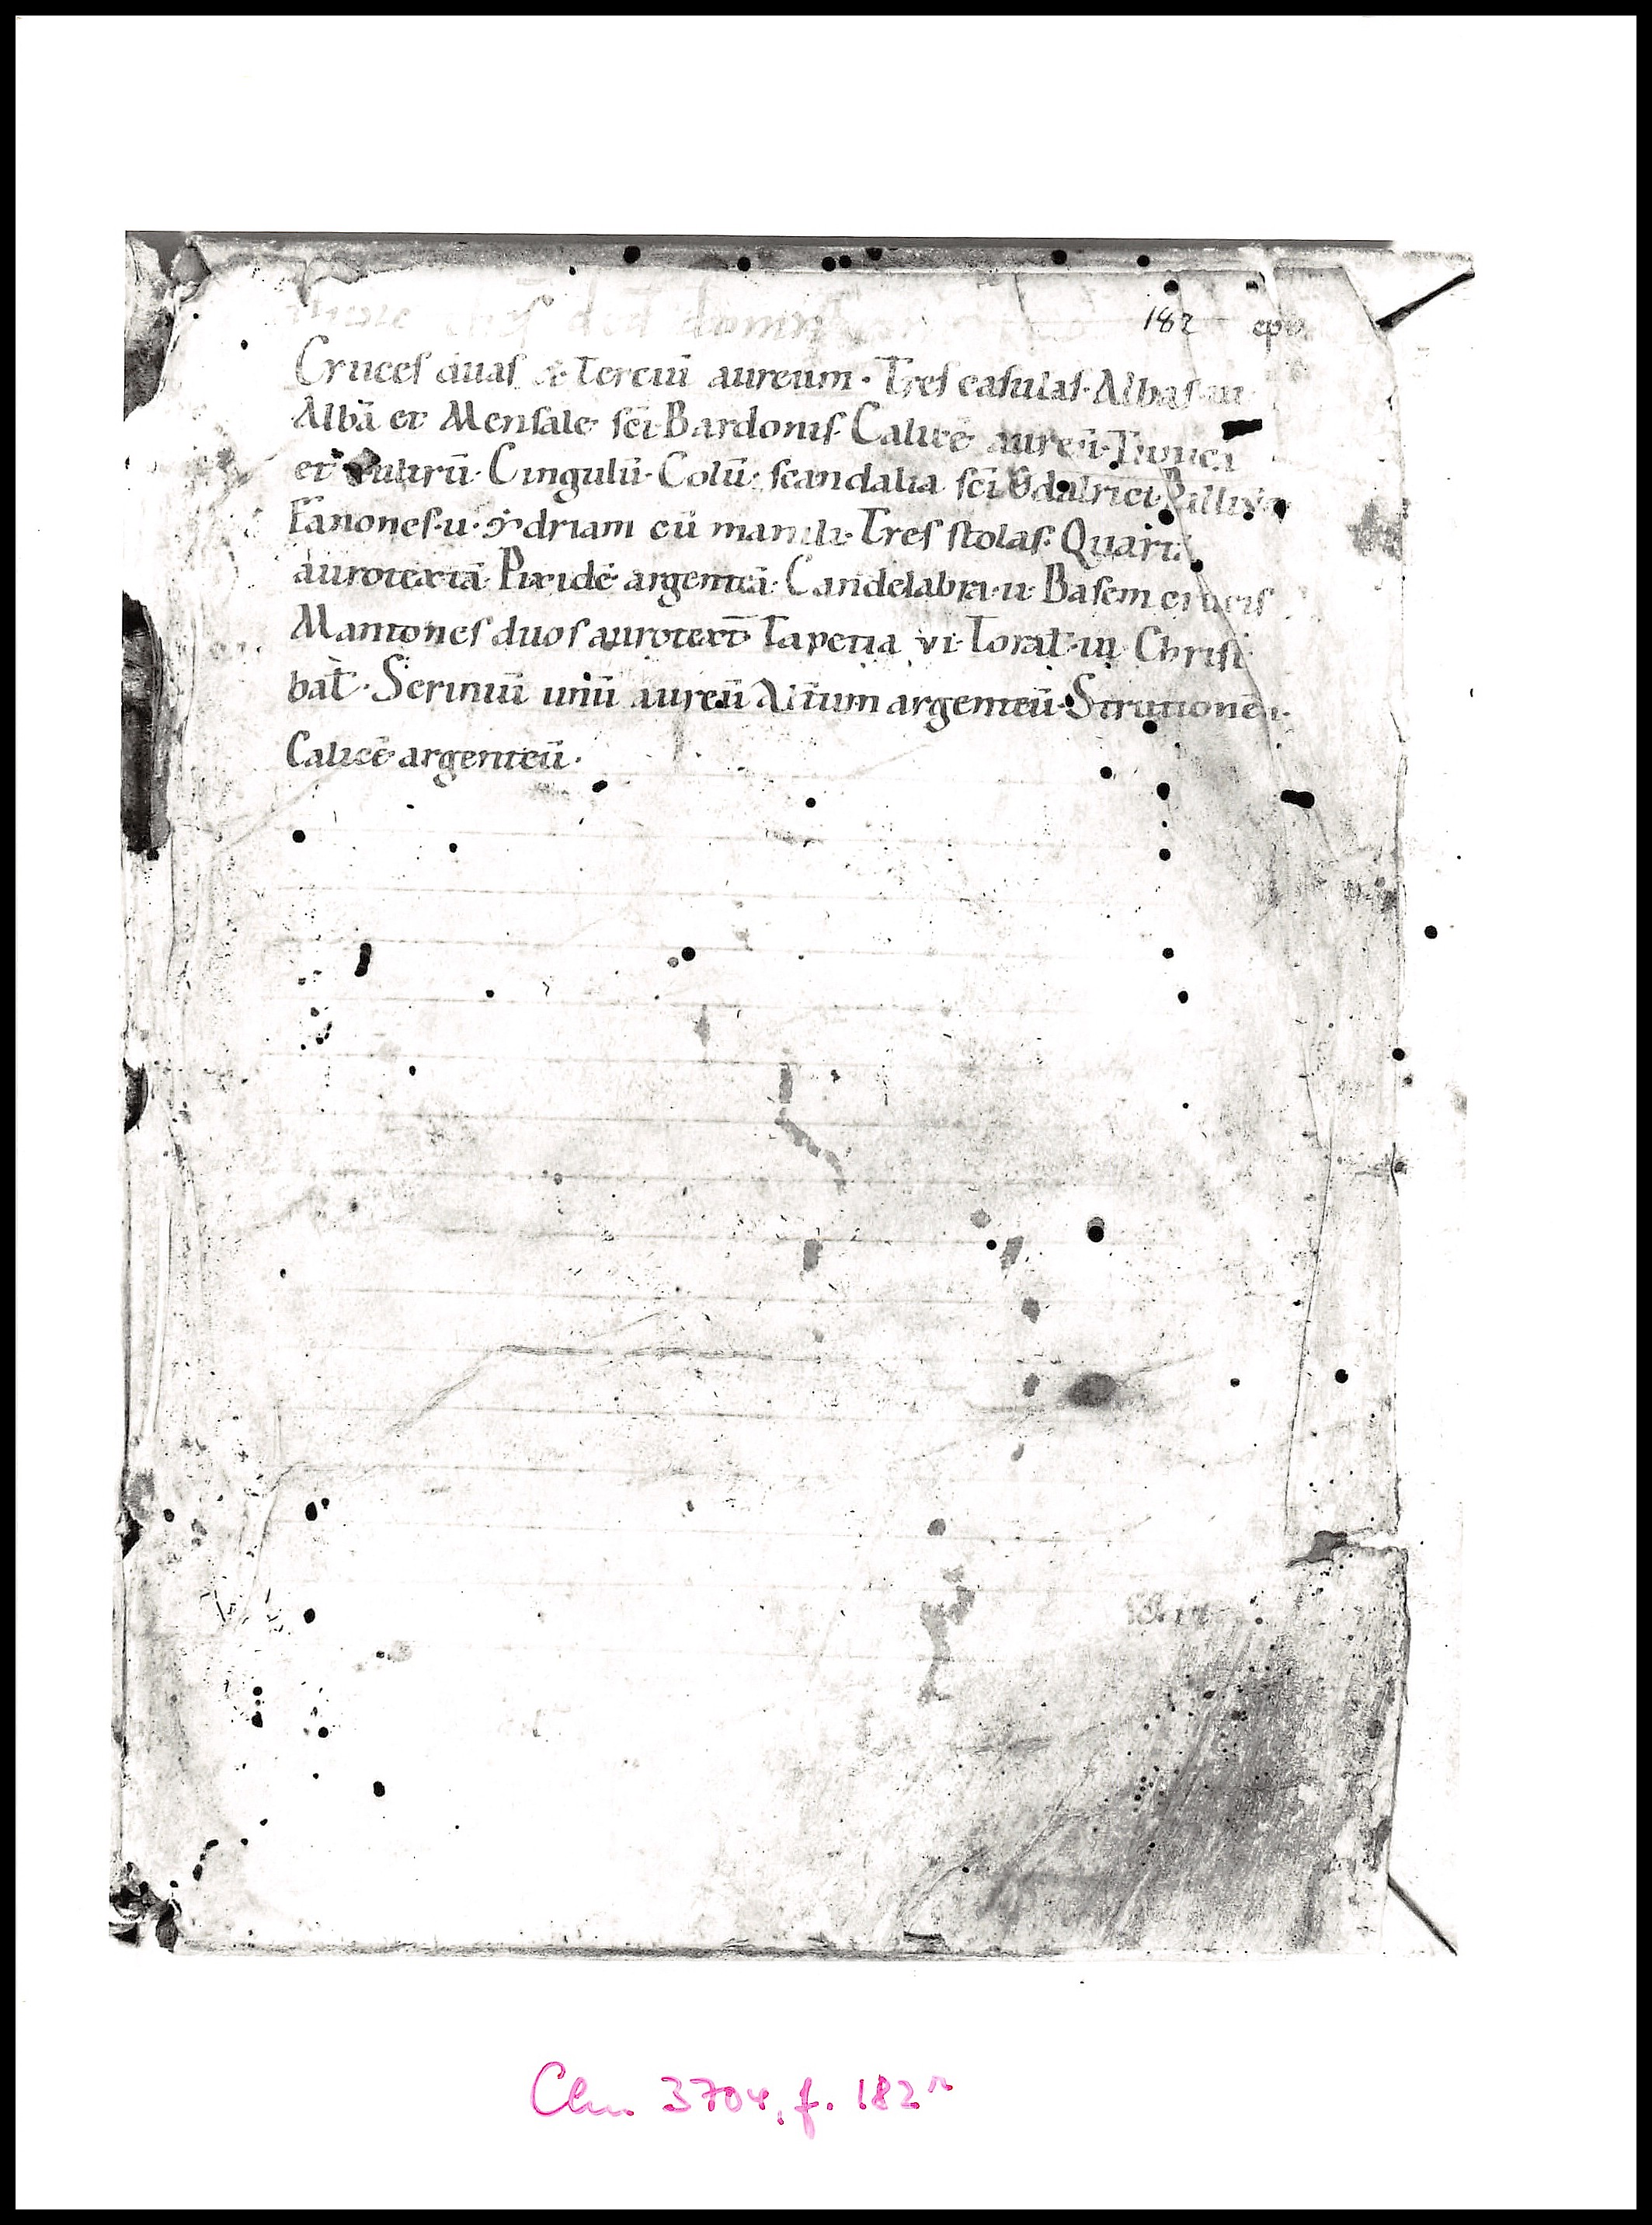 domin
182 ep̄o
Cruceſ duaſ & Terciū aureum · Treſ caſulaſ · Albaſ · iii
Albā et Menſale · ſc̄i Bardoniſ · Calicē aureū ·
et · Cingulū · Colū · ſcandalia ſc̄i Ǒdalrici ·
Fanoneſ · u · ydriam cū manili · Treſ ſtolaſ · Quartā
aurotextā · Pixidē argenteā · Candelabra · ii · Baſem cruciſ
Mantoneſ duoſ aurotext̄ Tapetia vi · Toral̄ · iii · Chriſt
bal̄ · Scriniū unū aureū Alium argenteū · Strutionē · i ·
Calicē argenteū ·
Clm 3704, f. 182r